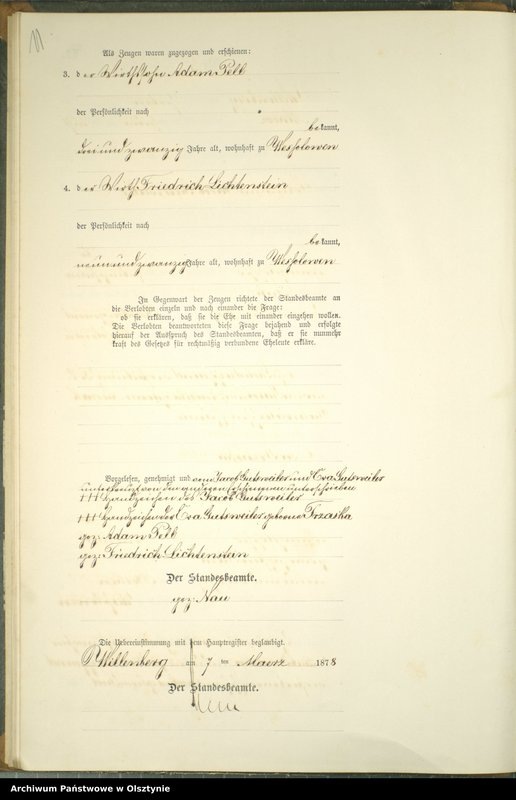 11
Als Zeugen waren zugezogen und erschienen:
3. der Wirthssohn Adam Pelb
der Persönlichkeit nach
bekannt,
dreiundzwanzig Jahre alt, wohnhaft zu Wessolowen
4. der Wirth Friedrich Lichtenstein
der Persönlichkeit nach
bekannt,
neunundzwanzig Jahre alt, wohnhaft zu Wessolowen
In Gegenwart der Zeugen richtete der Standesbeamte an
die Verlobten einzeln und nach einander die Frage:
ob sie erklären, daß sie die Ehe mit einander eingehen wollen.
Die Verlobten beantworteten diese Frage bejahend und erfolgte
hierauf der Ausspruch des Standesbeamten, daß er sie nunmehr
kraft des Gesetzes für rechtmäßig verbundene Eheleute erkläre.
Vorgelesen, genehmigt und vom Jacob Gutsweiler und Eva Gutsweiler
unterkreuzt von den anderen Erschienenen unterschrieben
+++ Handzeichen des Jacob Gutsweiler
+++ Handzeichen der Eva Gutsweiler geborene Trzaska
gez: Adam Pelb
gez: Friedrich Lichtenstein
Der Standesbeamte.
gez: Nau
Die Uebereinstimmung mit dem Hauptregister beglaubigt.
Willenberg am 7 ten Maerz 1878
Der Standesbeamte.
Nau
Archiwum Państwowe w Olsztynie